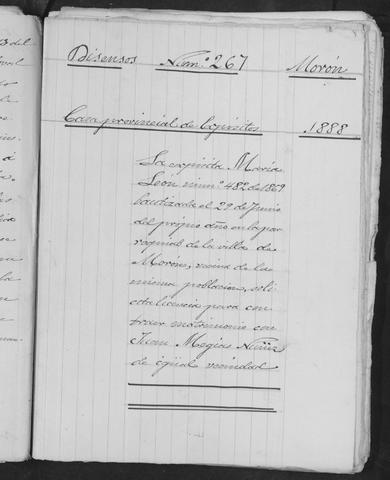 Disensos Núm.º 267 Morón
Casa provincial de Expósitos 1888
La expósita María
León núm.º 482 de 1869
bautizada el 29 de Junio
del propio año en la par
roquial de la villa de
Morón, vecina de la
misma poblacion, soli
cita licencia para con
traer matrimonio con
Juan Megias Nuñez
de igual vecindad